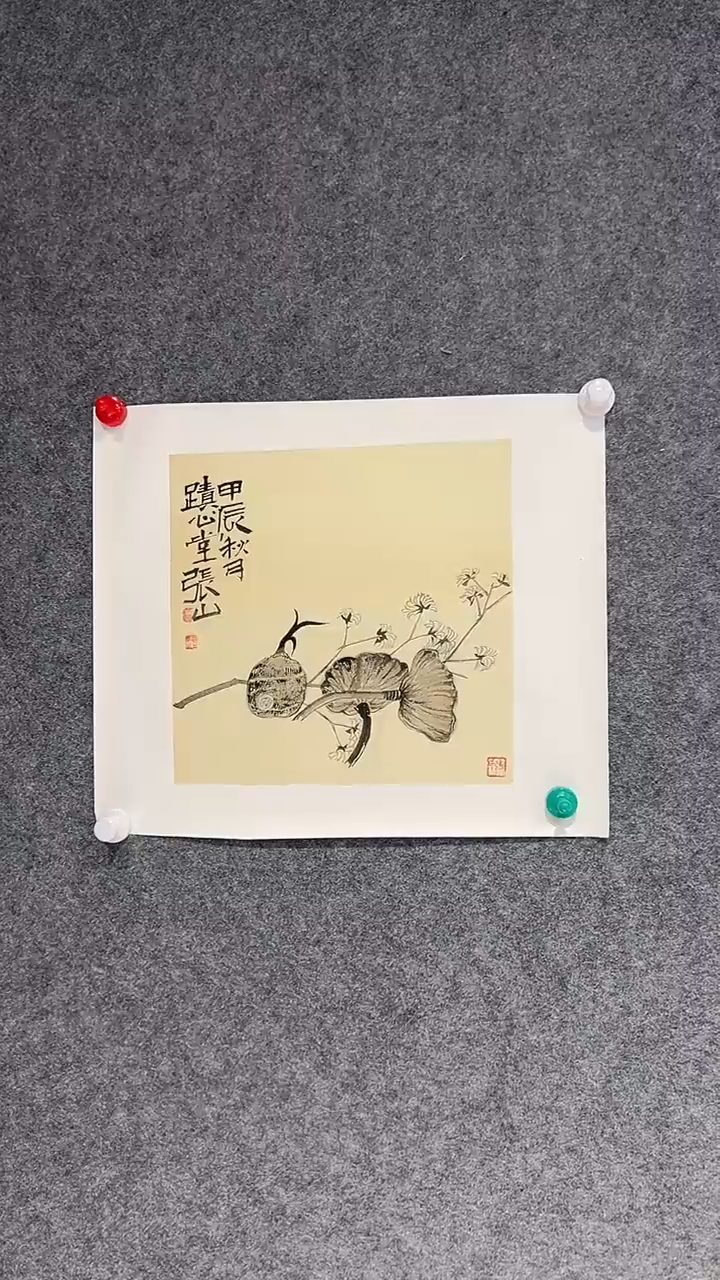 甲辰秋月
蹟心堂張山